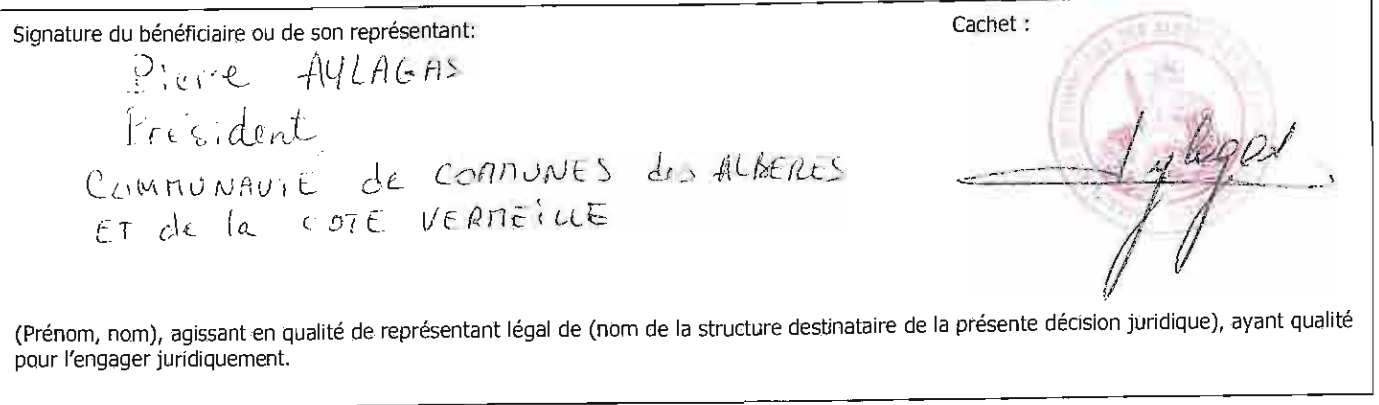 Signature du bénéficiaire ou de son représentant:
Cachet :
Pierre AYLAGAS
Président
COMMUNAUTE de COMMUNES des ALBERES
ET de la COTE VERMEILLE
Aylagas
(Prénom, nom), agissant en qualité de représentant légal de (nom de la structure destinataire de la présente décision juridique), ayant qualité
pour l'engager juridiquement.